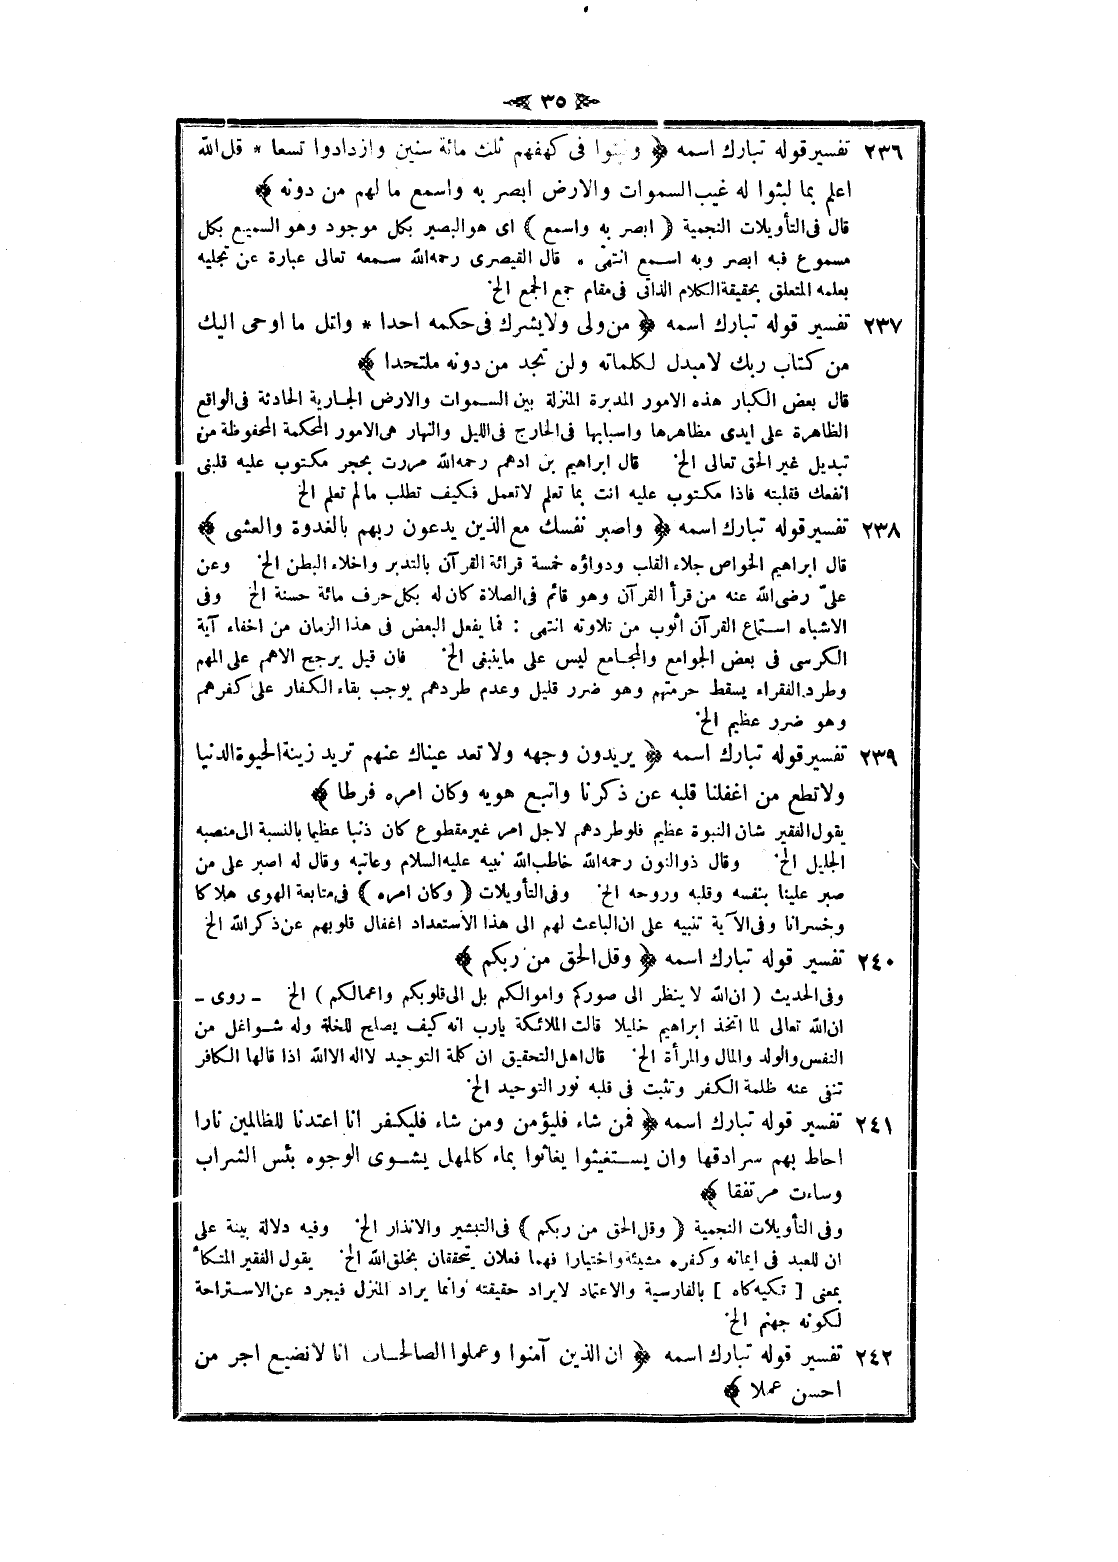 ٣٥
٢٣٦ تفسير قوله تبارك اسمه ﴿ ولبثوا فى كهفهم ثلث مائة سنين وازدادوا تسعا * قل الله
اعلم بما لبثوا له غيب السموات والارض ابصر به واسمع ما لهم من دونه ﴾
قال فى التأويلات النجمية ( ابصر به واسمع ) اى هو البصير بكل موجود وهو السميع بكل
مسموع فبه ابصر وبه اسمع انتهى . قال القيصرى رحمه الله سمعه تعالى عبارة عن تجليه
بعلمه المتعلق بحقيقة الكلام الذاتى فى مقام جمع الجمع الخ
٢٣٧ تفسير قوله تبارك اسمه ﴿ من ولى ولا يشرك فى حكمه احدا * واتل ما اوحى اليك
من كتاب ربك لا مبدل لكلماته ولن تجد من دونه ملتحدا ﴾
قال بعض الكبار هذه الامور المدبرة المنزلة بين السموات والارض الجارية الحادثة فى الواقع
الظاهرة على ايدى مظاهرها واسبابها فى الخارج فى الليل والنهار هى الامور المحكمة المحفوظة من
تبديل غير الحق تعالى الخ قال ابراهيم بن ادهم رحمه الله مررت بحجر مكتوب عليه قلبنى
انفعك فقلبته فاذا مكتوب عليه انت بما تعلم لاتعمل فكيف تطلب مالم تعلم الخ
٢٣٨ تفسير قوله تبارك اسمه ﴿ واصبر نفسك مع الذين يدعون ربهم بالغدوة والعشى ﴾
قال ابراهيم الخواص جلاء القلب ودواؤه خمسة قرائة القرآن بالتدبر واخلاء البطن الخ وعن
علىّ رضى الله عنه من قرأ القرآن وهو قائم فى الصلاة كان له بكل حرف مائة حسنة الخ وفى
الاشباه استماع القرآن اثوب من تلاوته انتهى : فما يفعل البعض فى هذا الزمان من اخفاء آية
الكرسى فى بعض الجوامع والمجامع ليس على ماينبغى الخ فان قيل يرجح الاهم على المهم
وطرد الفقراء يسقط حرمتهم وهو ضرر قليل وعدم طردهم يوجب بقاء الكفار على كفرهم
وهو ضرر عظيم الخ
٢٣٩ تفسير قوله تبارك اسمه ﴿ يريدون وجهه ولا تعد عيناك عنهم تريد زينة الحيوة الدنيا
ولاتطع من اغفلنا قلبه عن ذكرنا واتبع هويه وكان امره فرطا ﴾
يقول الفقير شان النبوة عظيم فلو طردهم لاجل امر غير مقطوع كان ذنبا عظيما بالنسبة الى منصبه
الجليل الخ وقال ذو النون رحمه الله خاطب الله نبيه عليه السلام وعاتبه وقال له اصبر على من
صبر علينا بنفسه وقلبه وروحه الخ وفى التأويلات ( وكان امره ) فى متابعة الهوى هلاكا
وخسرانا وفى الآية تنبيه على ان الباعث لهم الى هذا الاستعداد اغفال قلوبهم عن ذكر الله الخ
٢٤٠ تفسير قوله تبارك اسمه ﴿ وقل الحق من ربكم ﴾
وفى الحديث ( ان الله لا ينظر الى صوركم واموالكم بل الى قلوبكم واعمالكم ) الخ ـ روى ـ
ان الله تعالى لما اتخذ ابراهيم خليلا قالت الملائكة يارب انه كيف يصلح للخلة وله شواغل من
النفس والولد والمال والمرأة الخ قال اهل التحقيق ان كلمة التوحيد لااله الاالله اذا قالها الكافر
تنفى عنه ظلمة الكفر وتثبت فى قلبه نور التوحيد الخ
٢٤١ تفسير قوله تبارك اسمه ﴿ فمن شاء فليؤمن ومن شاء فليكفر انا اعتدنا للظالمين نارا
احاط بهم سرادقها وان يستغيثوا يغاثوا بماء كالمهل يشوى الوجوه بئس الشراب
وساءت مرتفقا ﴾
وفى التأويلات النجمية ( وقل الحق من ربكم ) فى التبشير والانذار الخ وفيه دلالة بينة على
ان للعبد فى ايمانه وكفره مشيئة واختيارا فهما فعلان يتحققان بخلق الله الخ يقول الفقير المتكأ
بمعنى [ تكيه كاه ] بالفارسية والاعتماد لايراد حقيقته وانما يراد المنزل فيجرد عن الاستراحة
لكونه جهنم الخ
٢٤٢ تفسير قوله تبارك اسمه ﴿ ان الذين آمنوا وعملوا الصالحات انا لانضيع اجر من
احسن عملا ﴾